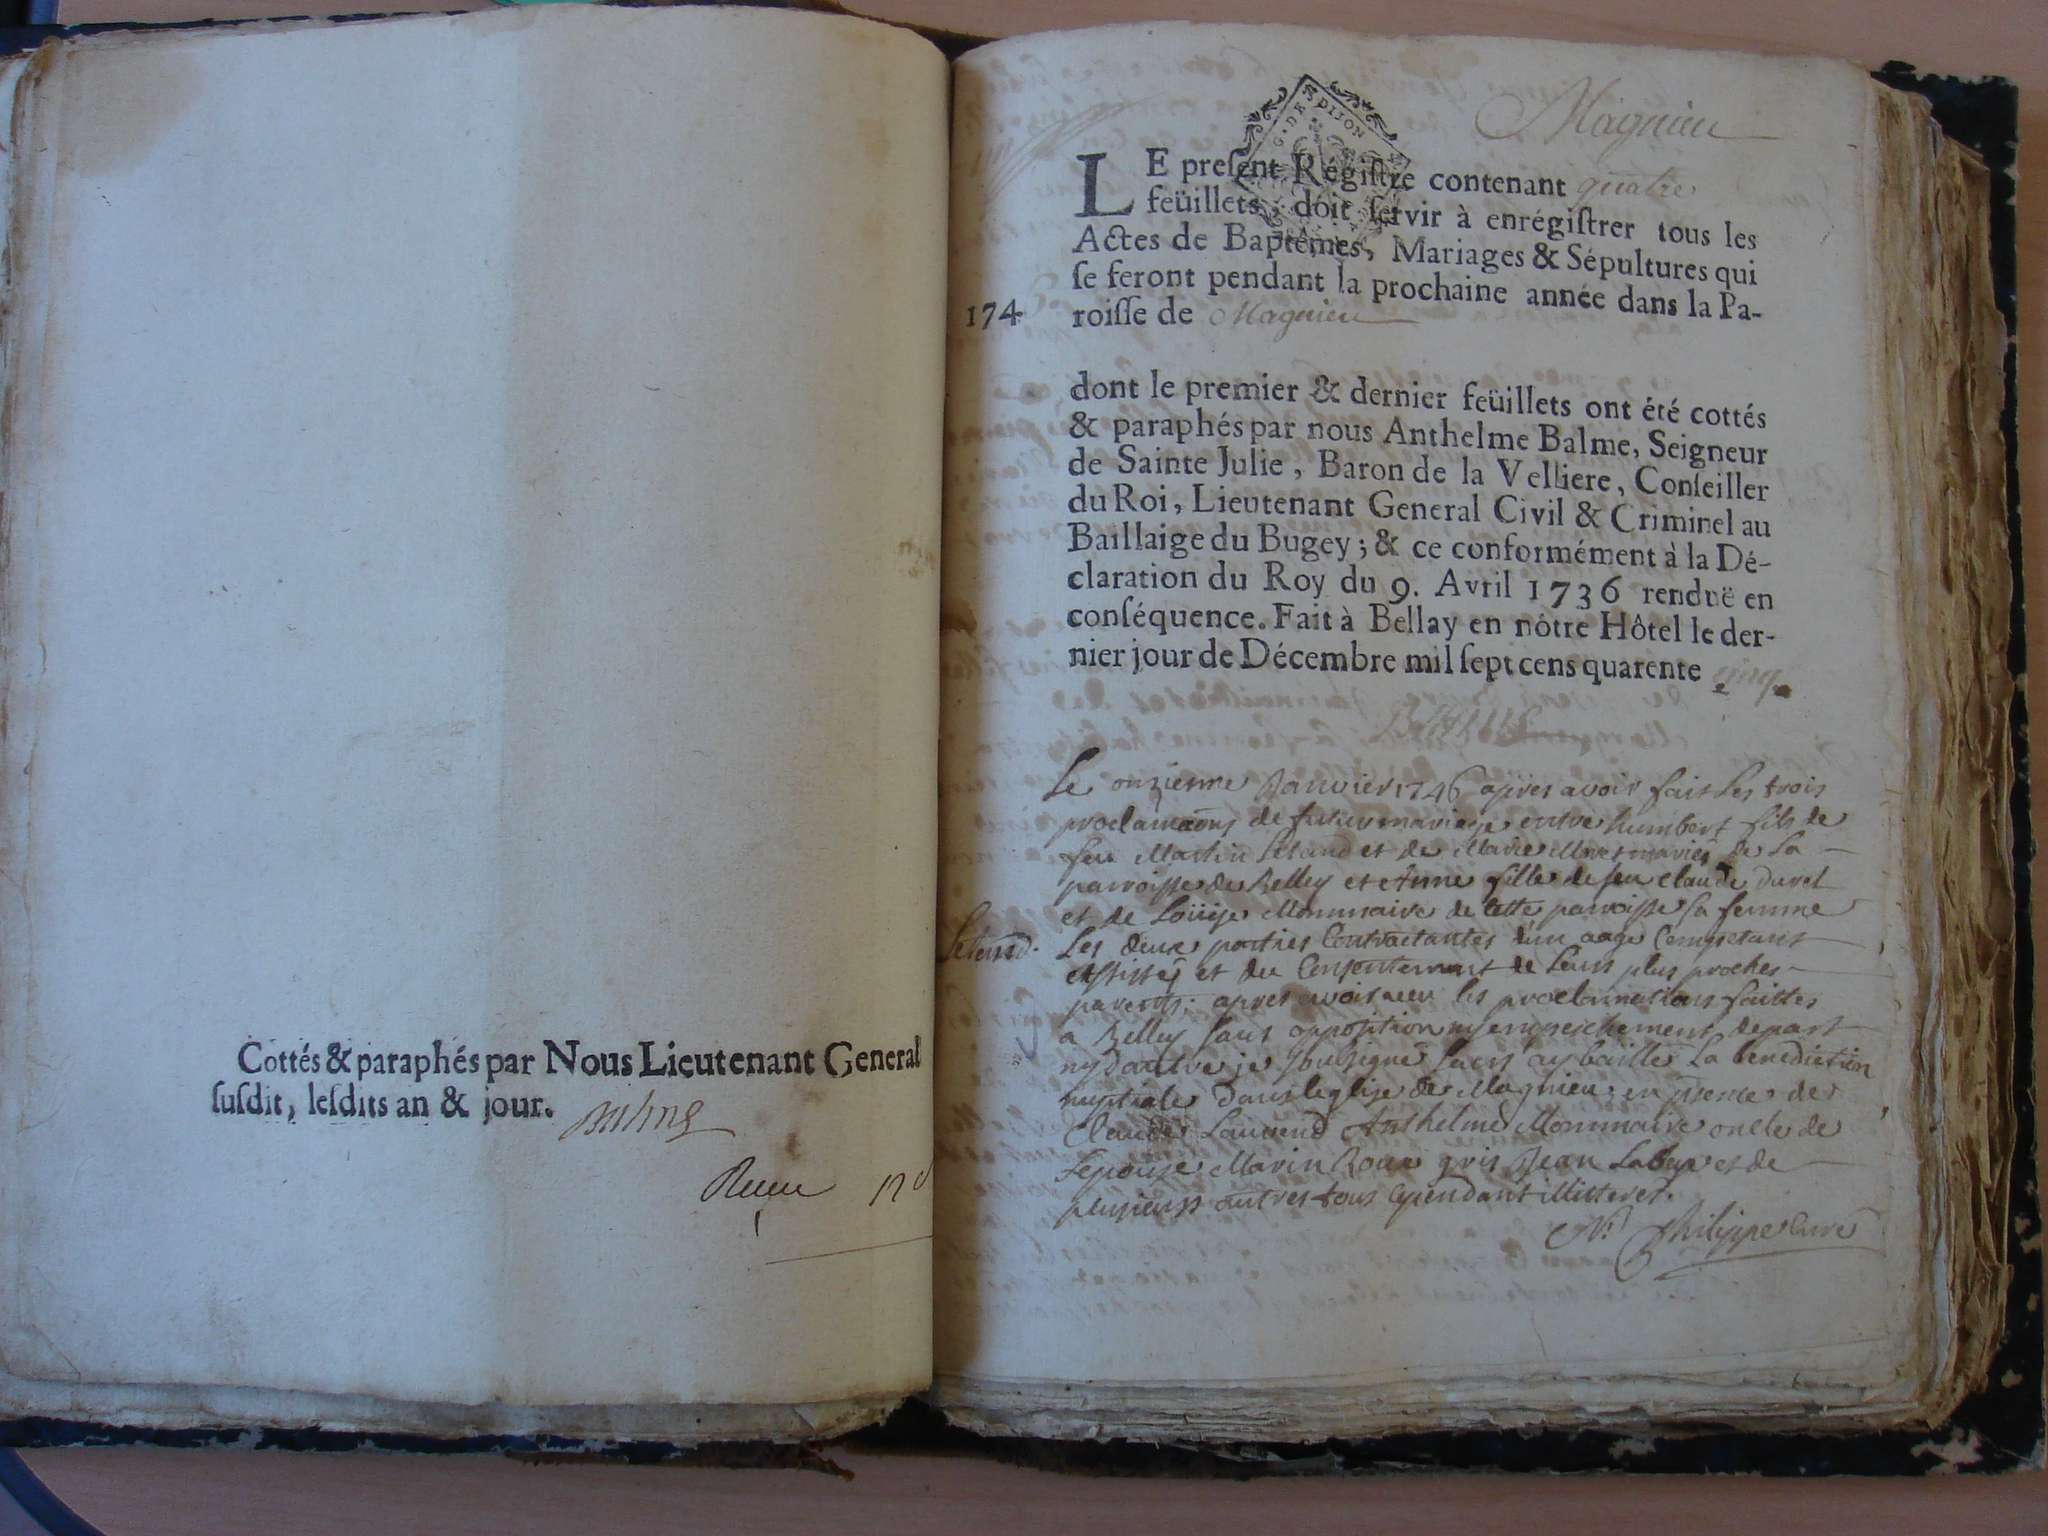 Cottés & paraphés par Nous Lieutenant General
ſuſdit, leſdits an & jour.
G. DE DIJON
Magnieu
LE preſent Régiſtre contenant quatre
feüillets, doit ſervir à enrégiſtrer tous les
Actes de Baptêmes, Mariages & Sépultures qui
ſe feront pendant la prochaine année dans la Pa-
174 roiſſe de Magnieu
dont le premier & dernier feüillets ont été cottés
& paraphés par nous Anthelme Balme, Seigneur
de Sainte Julie, Baron de la Velliere, Conſeiller
du Roi, Lieutenant General Civil & Criminel au
Baillaige du Bugey; & ce conformément à la Dé-
claration du Roy du 9. Avril 1736 renduë en
conſéquence. Fait à Bellay en nôtre Hôtel le der-
nier jour de Décembre mil ſept cens quarente cinq
Le onzieme Janvier 1746 apres avoir fait les trois
proclamaōns de futur mariage entre humbert fils de
feu Martin et de Marie mariés de la
parroisse de Belley et Anne fille de feu Claude
et de Loüise Monnaire de cette parroisse sa femme
Les deux parties Contractantes d'un aage Competant
assistés et du Consentement de Leurs plus proches
parents; apres avoir veu les proclamations faittes
a Belley sans opposition ny empeichement, de part
ny d'autre je soussigné leurs ay baillé La benediction
nuptiale dans leglise de Magnieu en presence de
Claude Anthelme Monnaire oncle de
l'epouse Marin Roux gris Jean et de
plusieurs autres tous Cependant illitteres.
Philippe Curé